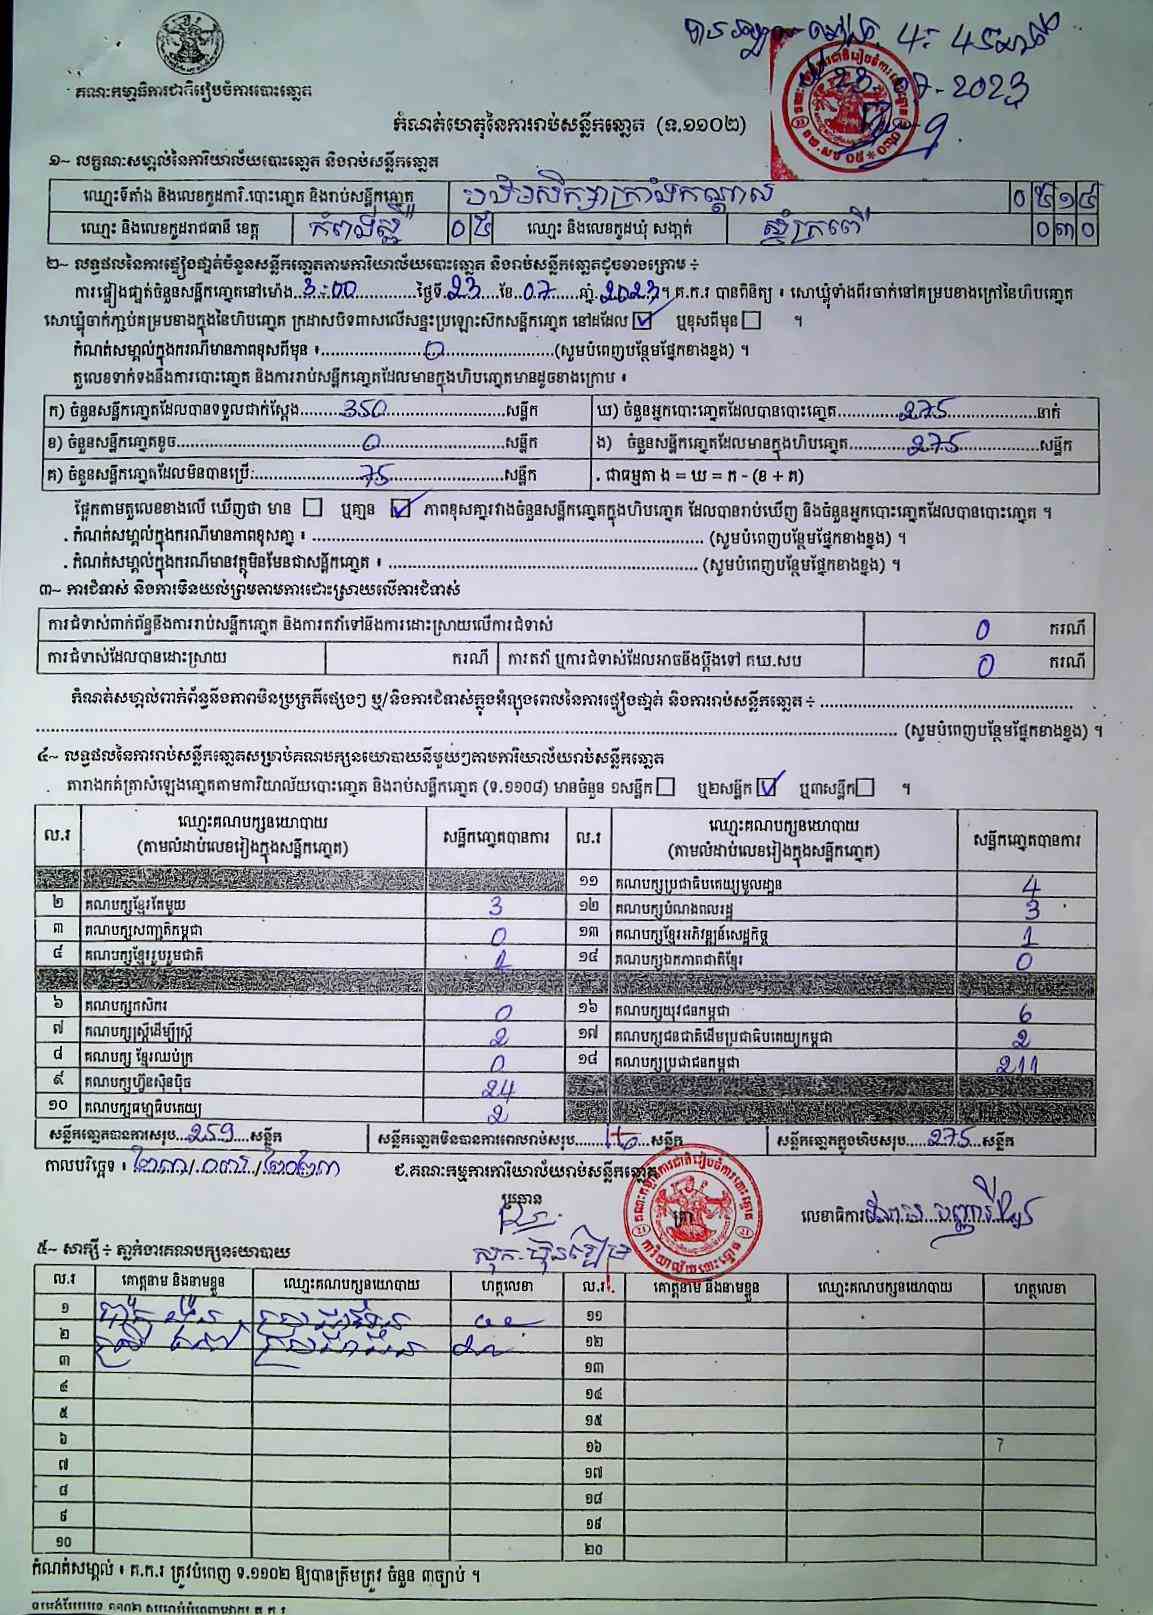 គណៈកម្មាធិការជាតិរៀបចំការបោះឆ្នោត
4: 45
23-07-2023
កំណត់ហេតុនៃការរាប់សន្លឹកឆ្នោត (ទ.១១០២)
១~ លក្ខណៈសម្គាល់នៃការិយាល័យបោះឆ្នោត និងរាប់សន្លឹកឆ្នោត
ឈ្មោះទីតាំង និងលេខកូដការិ.បោះឆ្នោត និងរាប់សន្លឹកឆ្នោត
ឈ្មោះ និងលេខកូដរាជធានី ខេត្ត កំពង់ស្ពឺ ០ ៥ ឈ្មោះ និងលេខកូដឃុំ សង្កាត់ ០ ៣ ០
២~ លទ្ធផលនៃការផ្ទៀងផ្ទាត់ចំនួនសន្លឹកឆ្នោតតាមការិយាល័យបោះឆ្នោត និងរាប់សន្លឹកឆ្នោតដូចខាងក្រោម ÷
ការផ្ទៀងផ្ទាត់ចំនួនសន្លឹកឆ្នោតនៅម៉ោង 3:00 ថ្ងៃទី 23 ខែ 07 ឆ្នាំ 2023 ។ គ.ក.រ បានពិនិត្យ ៖ សោឃ្មុំទាំងពីរចាក់នៅគម្របខាងក្រៅនៃហិបឆ្នោត
សោឃ្មុំចាក់ភ្ជាប់គម្របខាងក្នុងនៃហិបឆ្នោត ក្រដាសបិទពាសលើសន្ទះប្រឡោះស៊កសន្លឹកឆ្នោត នៅដដែល ☑ ឬខុសពីមុន ☐ ។
កំណត់សម្គាល់ក្នុងករណីមានភាពខុសពីមុន ៖ 0 (សូមបំពេញបន្ថែមផ្នែកខាងខ្នង) ។
តួលេខទាក់ទងនឹងការបោះឆ្នោត និងការរាប់សន្លឹកឆ្នោតដែលមានក្នុងហិបឆ្នោតមានដូចខាងក្រោម ៖
ក) ចំនួនសន្លឹកឆ្នោតដែលបានទទួលជាក់ស្តែង 350 សន្លឹក ឃ) ចំនួនអ្នកបោះឆ្នោតដែលបានបោះឆ្នោត 275 នាក់
ខ) ចំនួនសន្លឹកឆ្នោតខូច 0 សន្លឹក ង) ចំនួនសន្លឹកឆ្នោតដែលមានក្នុងហិបឆ្នោត 275 សន្លឹក
គ) ចំនួនសន្លឹកឆ្នោតដែលមិនបានប្រើ: 75 សន្លឹក . ជាធម្មតា ង = ឃ = ក - (ខ + គ)
ផ្អែកតាមតួលេខខាងលើ ឃើញថា មាន ☐ ឬគ្មាន ☑ ភាពខុសគ្នារវាងចំនួនសន្លឹកឆ្នោតក្នុងហិបឆ្នោត ដែលបានរាប់ឃើញ និងចំនួនអ្នកបោះឆ្នោតដែលបានបោះឆ្នោត ។
. កំណត់សម្គាល់ក្នុងករណីមានភាពខុសគ្នា ៖ (សូមបំពេញបន្ថែមផ្នែកខាងខ្នង) ។
. កំណត់សម្គាល់ក្នុងករណីមានវត្ថុមិនមែនជាសន្លឹកឆ្នោត ៖ (សូមបំពេញបន្ថែមផ្នែកខាងខ្នង) ។
៣~ ការជំទាស់ និងការមិនយល់ព្រមតាមការដោះស្រាយលើការជំទាស់
ការជំទាស់ពាក់ព័ន្ធនឹងការរាប់សន្លឹកឆ្នោត និងការតវ៉ាទៅនឹងការដោះស្រាយលើការជំទាស់ 0 ករណី
ការជំទាស់ដែលបានដោះស្រាយ ករណី ការតវ៉ា ឬការជំទាស់ដែលអាចនឹងប្តឹងទៅ គឃ.សប 0 ករណី
កំណត់សម្គាល់ពាក់ព័ន្ធនឹងភាពមិនប្រក្រតីផ្សេងៗ ឬ/និងការជំទាស់ក្នុងអំឡុងពេលនៃការផ្ទៀងផ្ទាត់ និងការរាប់សន្លឹកឆ្នោត ÷
(សូមបំពេញបន្ថែមផ្នែកខាងខ្នង) ។
៤~ លទ្ធផលនៃការរាប់សន្លឹកឆ្នោតសម្រាប់គណបក្សនយោបាយនីមួយៗតាមការិយាល័យរាប់សន្លឹកឆ្នោត
តារាងកត់ត្រាសំឡេងឆ្នោតតាមការិយាល័យបោះឆ្នោត និងរាប់សន្លឹកឆ្នោត (ទ.១១០៨) មានចំនួន ១សន្លឹក ☐ ឬ២សន្លឹក ☑ ឬ៣សន្លឹក ☐ ។
ល.រ ឈ្មោះគណបក្សនយោបាយ (តាមលំដាប់លេខរៀងក្នុងសន្លឹកឆ្នោត) សន្លឹកឆ្នោតបានការ ល.រ ឈ្មោះគណបក្សនយោបាយ (តាមលំដាប់លេខរៀងក្នុងសន្លឹកឆ្នោត) សន្លឹកឆ្នោតបានការ
១១ គណបក្សប្រជាធិបតេយ្យមូលដ្ឋាន 4
២ គណបក្សខ្មែរតែមួយ 3 ១២ គណបក្សបំណងពលរដ្ឋ 3
៣ គណបក្សសញ្ជាតិកម្ពុជា 0 ១៣ គណបក្សខ្មែរអភិវឌ្ឍន៍សេដ្ឋកិច្ច 1
៤ គណបក្សខ្មែររួបរួមជាតិ 1 ១៤ គណបក្សឯកភាពជាតិខ្មែរ 0
៦ គណបក្សកសិករ 0 ១៦ គណបក្សយុវជនកម្ពុជា 6
៧ គណបក្សស្ត្រីដើម្បីស្ត្រី 2 ១៧ គណបក្សជនជាតិដើមប្រជាធិបតេយ្យកម្ពុជា 2
៨ គណបក្ស ខ្មែរឈប់ក្រ 0 ១៨ គណបក្សប្រជាជនកម្ពុជា 211
៩ គណបក្សហ៊្វុនស៊ិនប៉ិច 24
១០ គណបក្សធម្មាធិបតេយ្យ 2
សន្លឹកឆ្នោតបានការសរុប 259 សន្លឹក សន្លឹកឆ្នោតមិនបានការពេលរាប់សរុប សន្លឹក សន្លឹកឆ្នោតក្នុងហិបសរុប 275 សន្លឹក
កាលបរិច្ឆេទ ៖ ២៣/០៧/២០២៣ ជ.គណៈកម្មការការិយាល័យរាប់សន្លឹកឆ្នោត
ប្រធាន ត្រា លេខាធិការ
៥~ សាក្សី ÷ ភ្នាក់ងារគណបក្សនយោបាយ
ល.រ គោត្តនាម និងនាមខ្លួន ឈ្មោះគណបក្សនយោបាយ ហត្ថលេខា ល.រ គោត្តនាម និងនាមខ្លួន ឈ្មោះគណបក្សនយោបាយ ហត្ថលេខា
១ ១១
២ ១២
៣ ១៣
៤ ១៤
៥ ១៥
៦ ១៦
៧ ១៧
៨ ១៨
៩ ១៩
១០ ២០
កំណត់សម្គាល់ ៖ គ.ក.រ ត្រូវបំពេញ ទ.១១០២ ឱ្យបានត្រឹមត្រូវ ចំនួន ៣ច្បាប់ ។